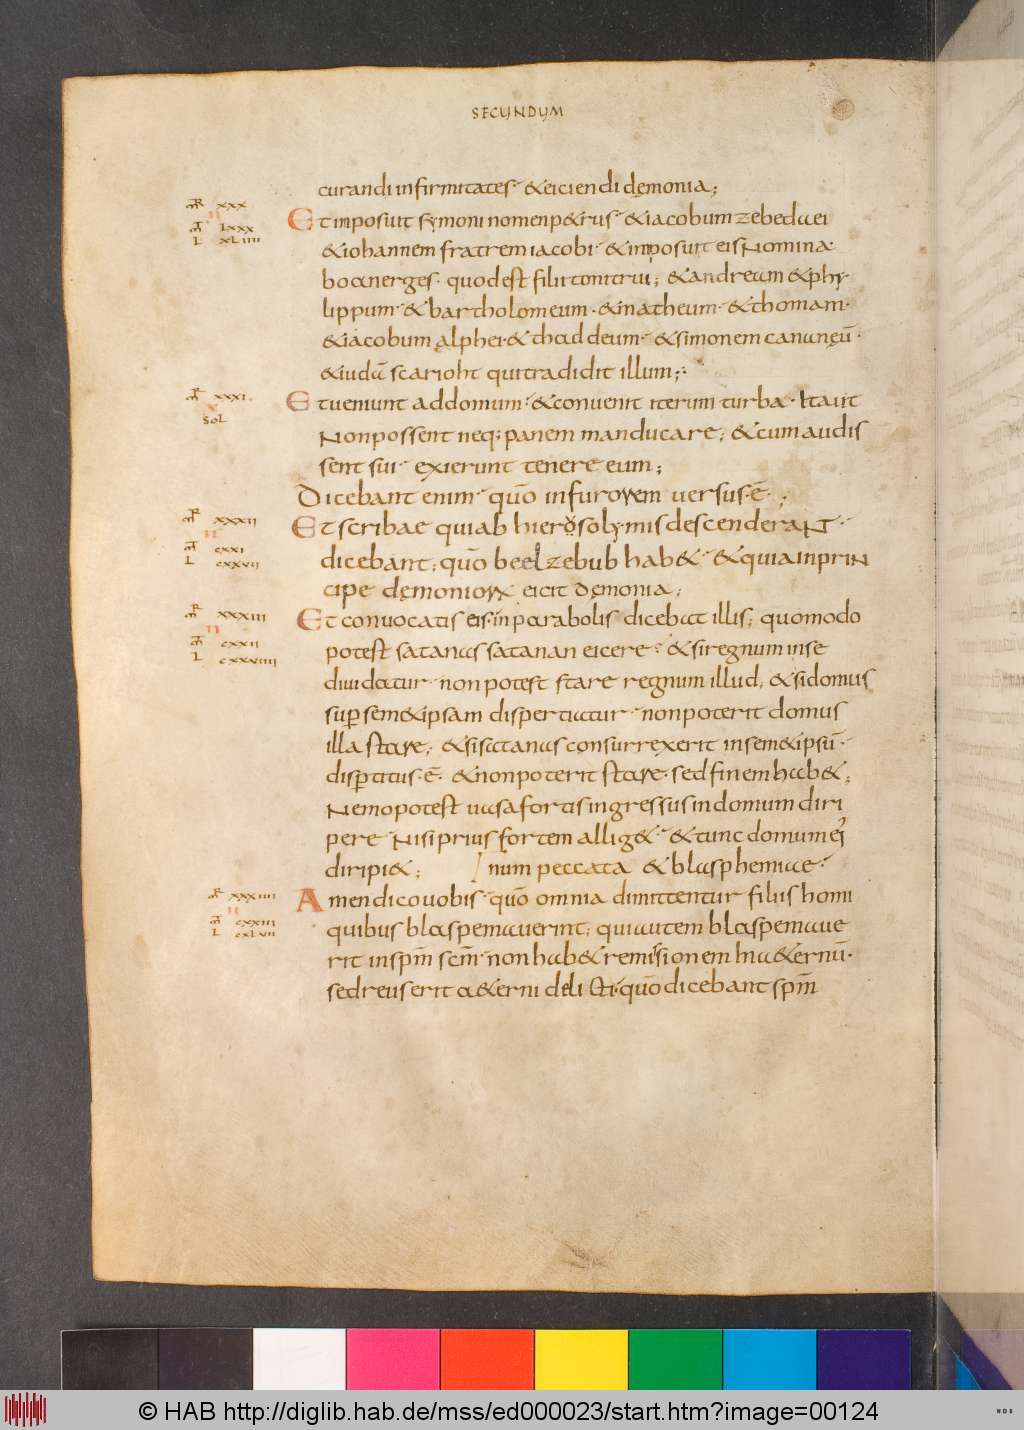 SECUNDUM
curandi infirmitates · & eiciendi dęmonia;
MR XXX
II
Et imposuit symoni nomen p&rus · & iacobum zebedaei
MT LXXX
L XLIIII
& iohannem fratrem iacobi · & imposuit eis Nomina ·
boanerges · quod est filii tonitrui; & andream & phy·
lippum · & bartholomeum · & matheum · & thomam ·
& iacobum alphei · & thaddeum · & simonem cananęū ·
& iudā scarioht qui tradidit illum;
MR XXXI
X
Et ueniunt ad domum · & conuenit iterum turba · Ita ut
SOL
Non possent neq; panem manducare; & cum audis
sent sui · exierunt tenere eum;
Dicebant enim · quō in furorem uersus · ē · ;
MR XXXII
II
Et scribae qui ab hierosolymis descenderaNT ·
MT CXXI
L CXXVII
dicebant; quō beelzebub hab& · & quia in priN
cipe dęmonioꝝ eicit dęmonia;
MR XXXIII
II
Et conuocatis eis · in parabolis dicebat illis; quomodo
MT CXXII
L CXXVIIII
potest satanas satanan eicere? & si regnum in se
diuidatur · non potest stare regnum illud; & si domus
suꝑ sem&ipsam dispertiatur · non poterit domus
illa stare; & si satanas consurrexerit in sem&ipsū ·
disꝑtitus · ē · & non poterit stare · sed finem hab&;
Nemo potest uasa fortis ingressus in domum diri
pere · Nisi prius fortem allig& · & tunc domum ei'
diripi&; num peccata & blasphemiae ·
MR XXXIIII
II
Amen dico uobis · quō omnia dimittentur filiis homi
MT CXXIII
L CXLVII
quibus blaspemauerint; qui autem blaspemaue
rit in spm̄ scm̄ · non hab& remissionem in a&ernū ·
sed reus erit a&erni delicti · quō dicebant spm̄
© HAB http://diglib.hab.de/mss/ed000023/start.htm?image=00124